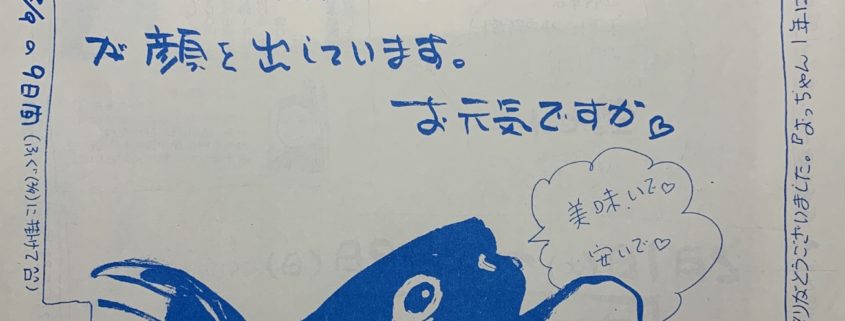 が顔を出しています。
お元気ですか
美味いで♡
安いで♡
9の9日間(ふぐ(29)に掛けて
りがとうございました。『おっちゃん1年に